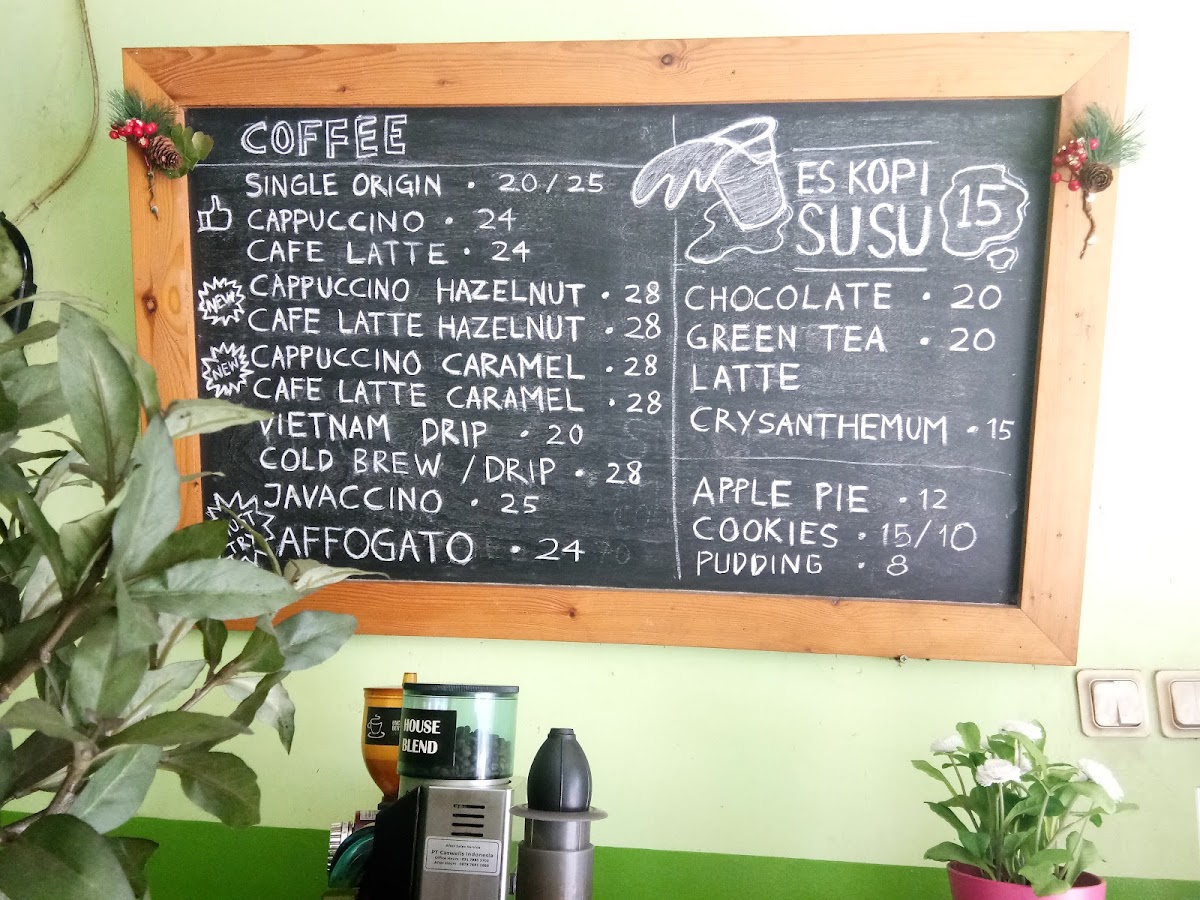 COFFEE
SINGLE ORIGIN · 20/25
CAPPUCCINO · 24
CAFE LATTE · 24
NEW
CAPPUCCINO HAZELNUT · 28
CAFE LATTE HAZELNUT · 28
NEW
CAPPUCCINO CARAMEL · 28
CAFE LATTE CARAMEL · 28
VIETNAM DRIP · 20
COLD BREW / DRIP · 28
JAVACCINO · 25
AFFOGATO · 24
ES KOPI
SUSU
15
CHOCOLATE · 20
GREEN TEA · 20
LATTE
CRYSANTHEMUM · 15
APPLE PIE · 12
COOKIES · 15/10
PUDDING · 8
HOUSE
BLEND
PT. Caswells Indonesia